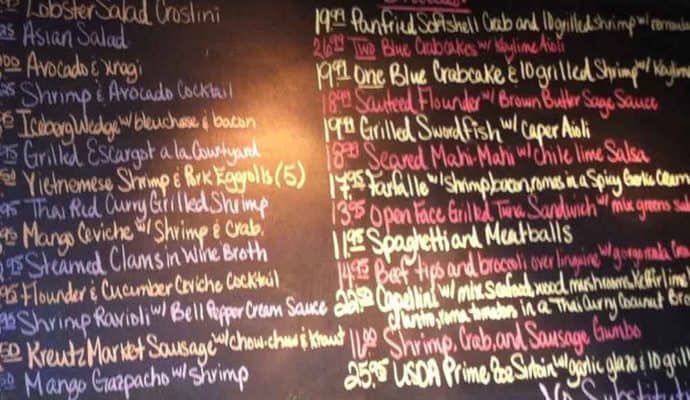 Lobster Salad Crostini
Asian Salad
Avocado & Unagi
Shrimp & Avocado Cocktail
Iceburg Wedge w/ bleuchese & bacon
Grilled Escargot a la Courtyard
Vietnemese Shrimp & Pork Eggrolls (5)
Thai Red Curry Grilled Shrimp
Mango Ceviche w/ Shrimp & Crab.
Steamed Clams in Wine Broth
Flounder & Cucumber Ceviche Cocktail
Shrimp Ravioli w/ Bell Pepper Cream Sauce
Kreutz Market Sausage w/ chow-chow & kraut
Mango Gazpacho w/ Shrimp
19.99 Panfried Softshell Crab and 10 grilled shrimp w/
26.99 Two Blue Crabcakes w/ Keylime Aioli
19.99 One Blue Crabcake & 10 Grilled Shrimp w/
18.99 Sauteed Flounder w/ Brown Butter Sage Sauce
19.99 Grilled Swordfish w/ Caper Aioli
18.99 Seared Mahi-Mahi w/ chile lime Salsa
17.95 Farfalle w/ Shrimp, bacon, romas in a Spicy Garlic Cream
13.95 Open Face Grilled Tuna Sandwich w/ mix greens
11.95 Spaghetti and Meatballs
14.95 Beef tips and broccoli over linguine w/ gorgonzola
Capellini w/ mix Seafood, wood mushrooms, Keffir lime
cilantro, roma tomatoes in a Thai Curry Coconut
Shrimp, Crab, and Sausage Gumbo
25.95 USDA Prime 8oz Sirloin w/ garlic glaze & 10
No